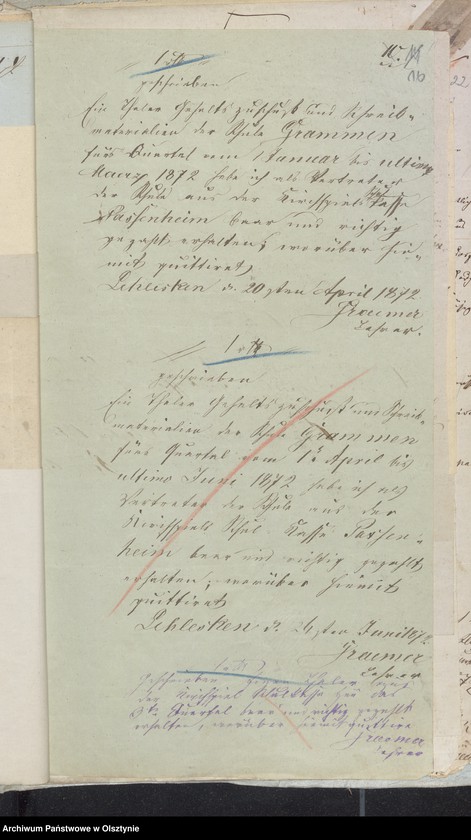 11.
16
1 rtl
geschrieben
Ein Thaler Gehaltszuschuß und Schreib-
materialien der Schule Grammen
fürs Quartal vom 1 Januar bis ultimo
Maerz 1872 habe ich als Vertreter
der Schule aus der Kirchspiels Kasse
Passenheim baar und richtig
gezahlt erhalten, worüber hier-
mit quittiret
Schlesken d. 20sten April 1872
Lehrer.
1 rtl
geschrieben
Ein Thaler Gehaltszuschuß und Schreib-
materialien der Schule Grammen
fürs Quartal vom 1t April bis
ultimo Juni 1872 habe ich als
Vertreter der Schule aus der
Kirchspiels Schul Kasse Passen-
heim baar und richtig gezahlt
erhalten, worüber hiermit
quittiret
Schlesken d. Juni 1872
Lehrer
1 rtl
geschrieben Thaler
der Kirchspiel
Quartal baar und richtig gezahlt
erhalten, worüber quittire
Lehrer
Archiwum Państwowe w Olsztynie